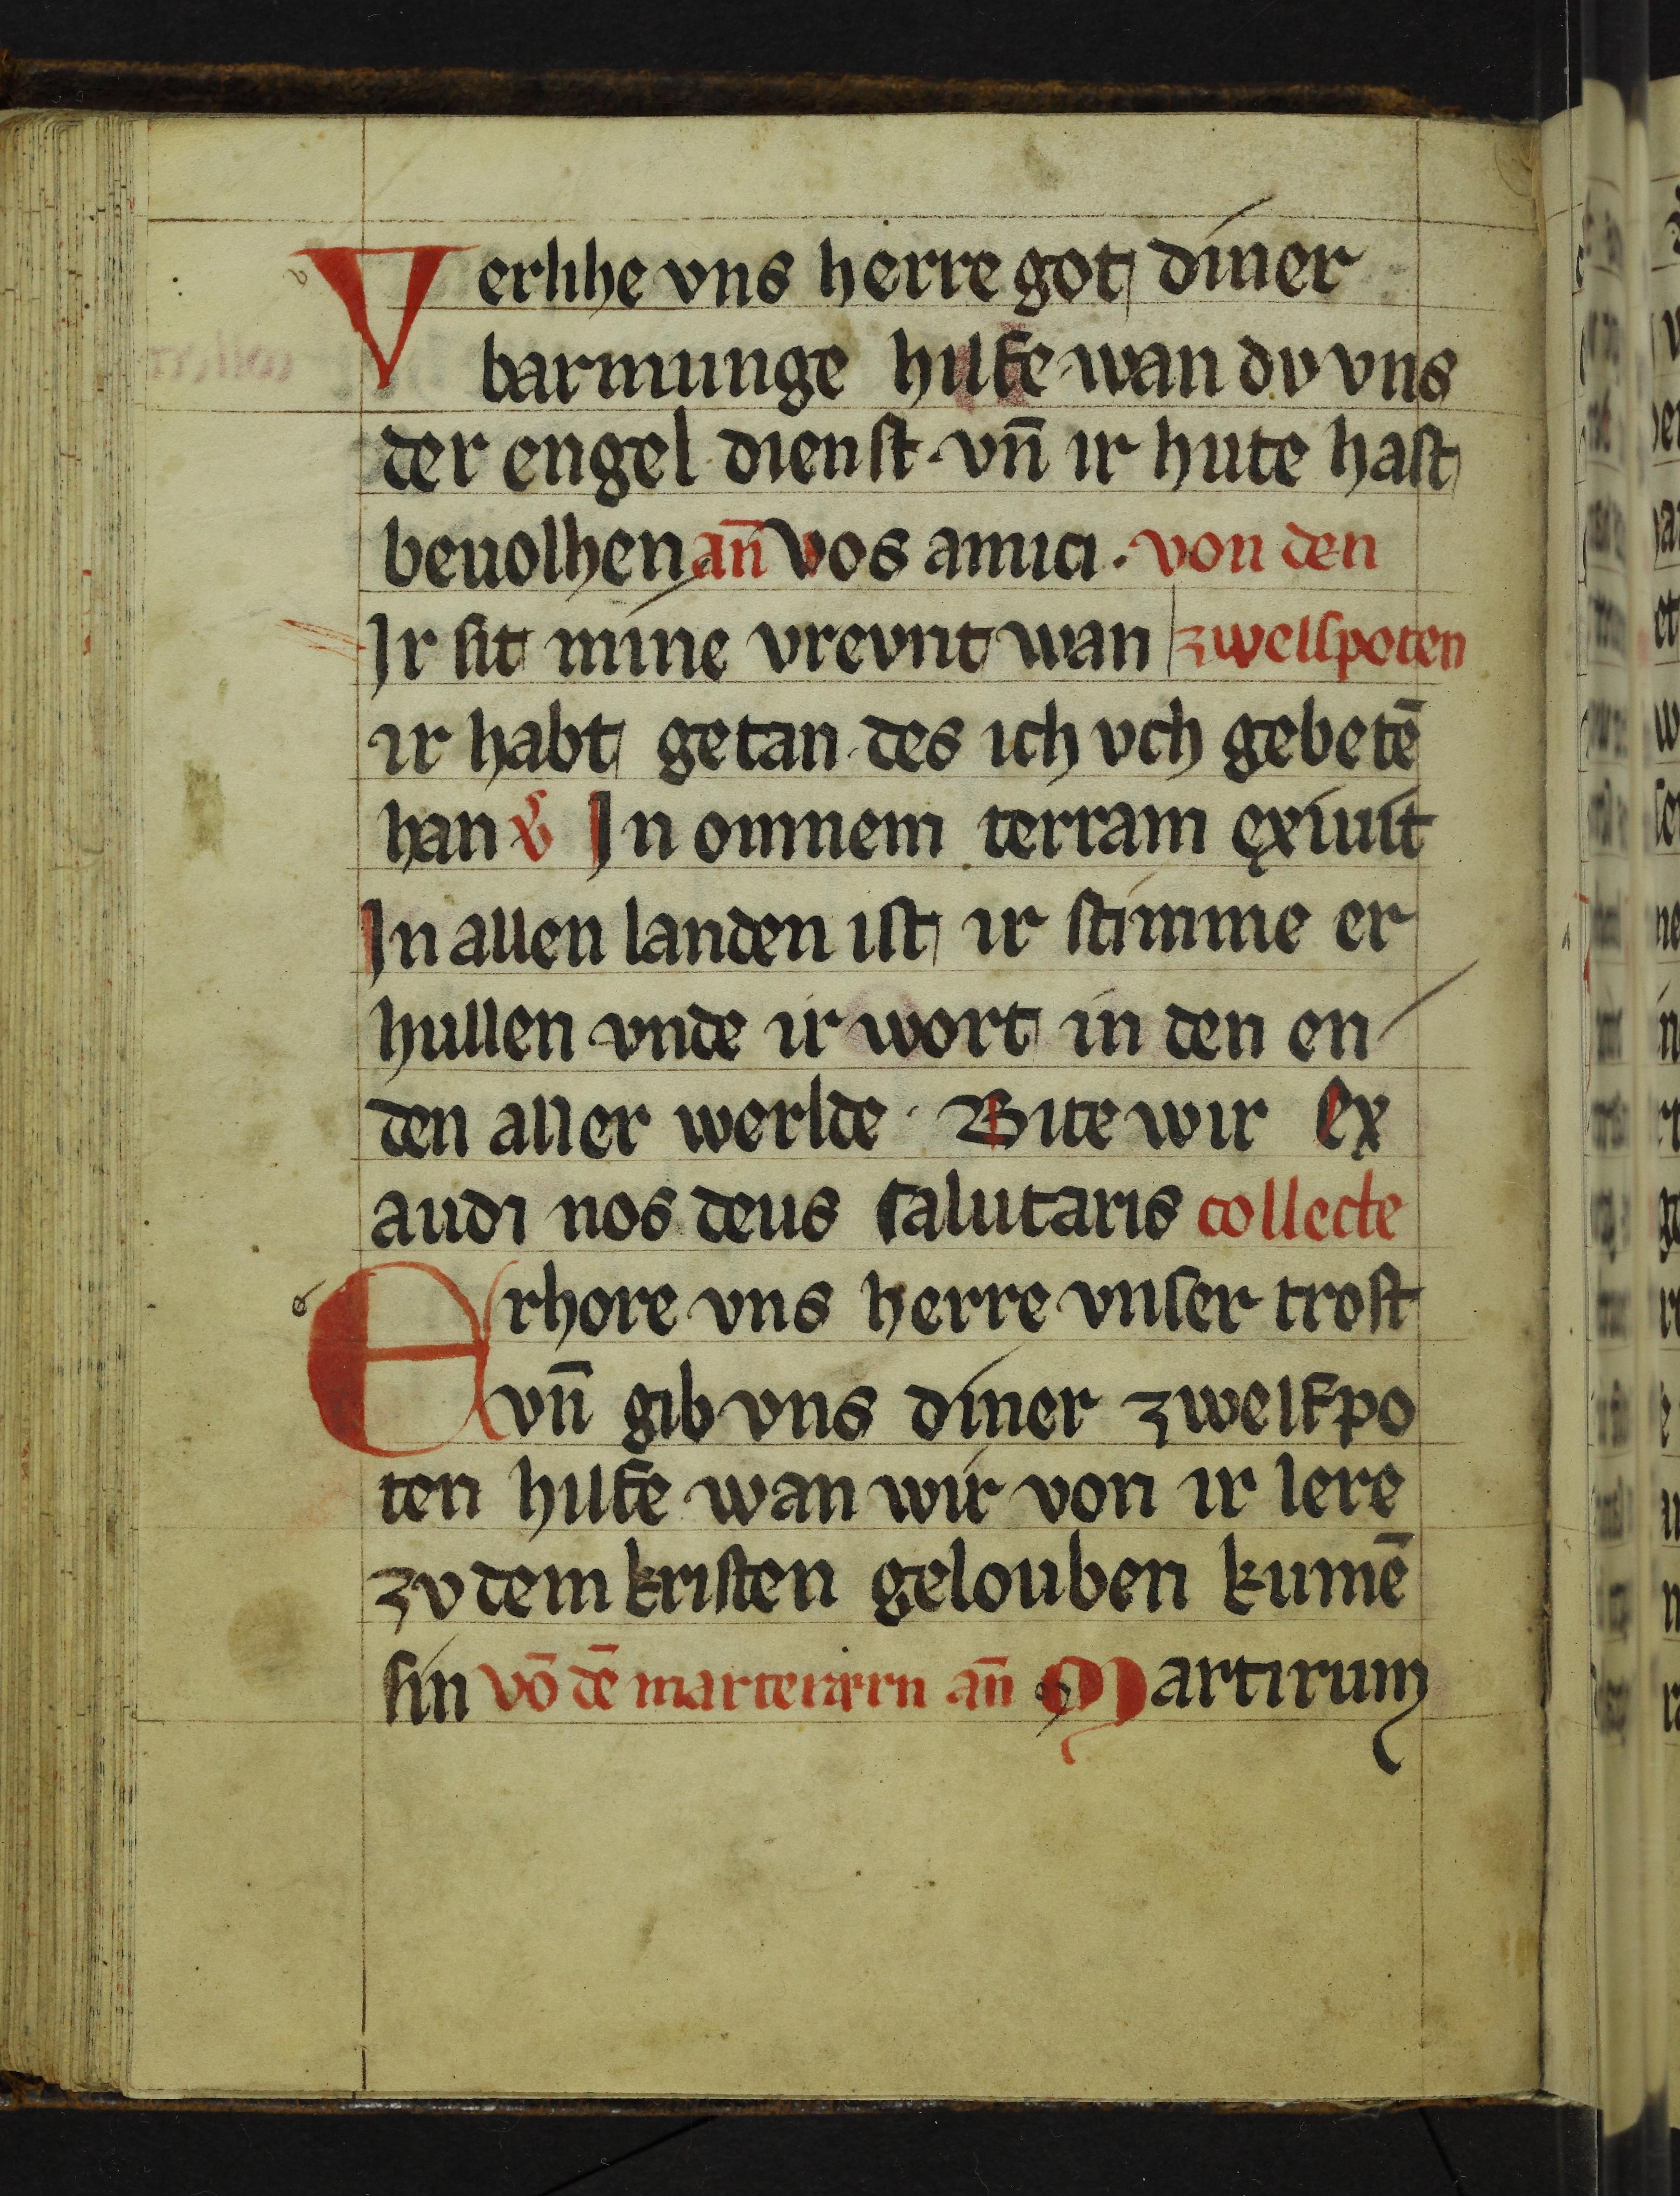 Verlihe vns herre got diner
barmunge hilfe wan dv vns
der engel dienst. vn̄ ir hute hast
beuolhen an̄ Vos amici. von den
Ir sit mine vrevnt wan zwelfpoten
ir habt getan des ich vch gebetē
han v̄ In omnem terram exiuit
In allen landen ist ir stimme er
hullen vnde ir wort in den en
den aller werlde. Bite wir Ex
audi nos deus salutaris collecte
Erhore vns herre vnser trost
vn̄ gib vns diner zwelfpo
ten hilfe wan wir von ir lere
zv dem kristen gelouben kumē
sin vō dē marterern an̄ Martirum